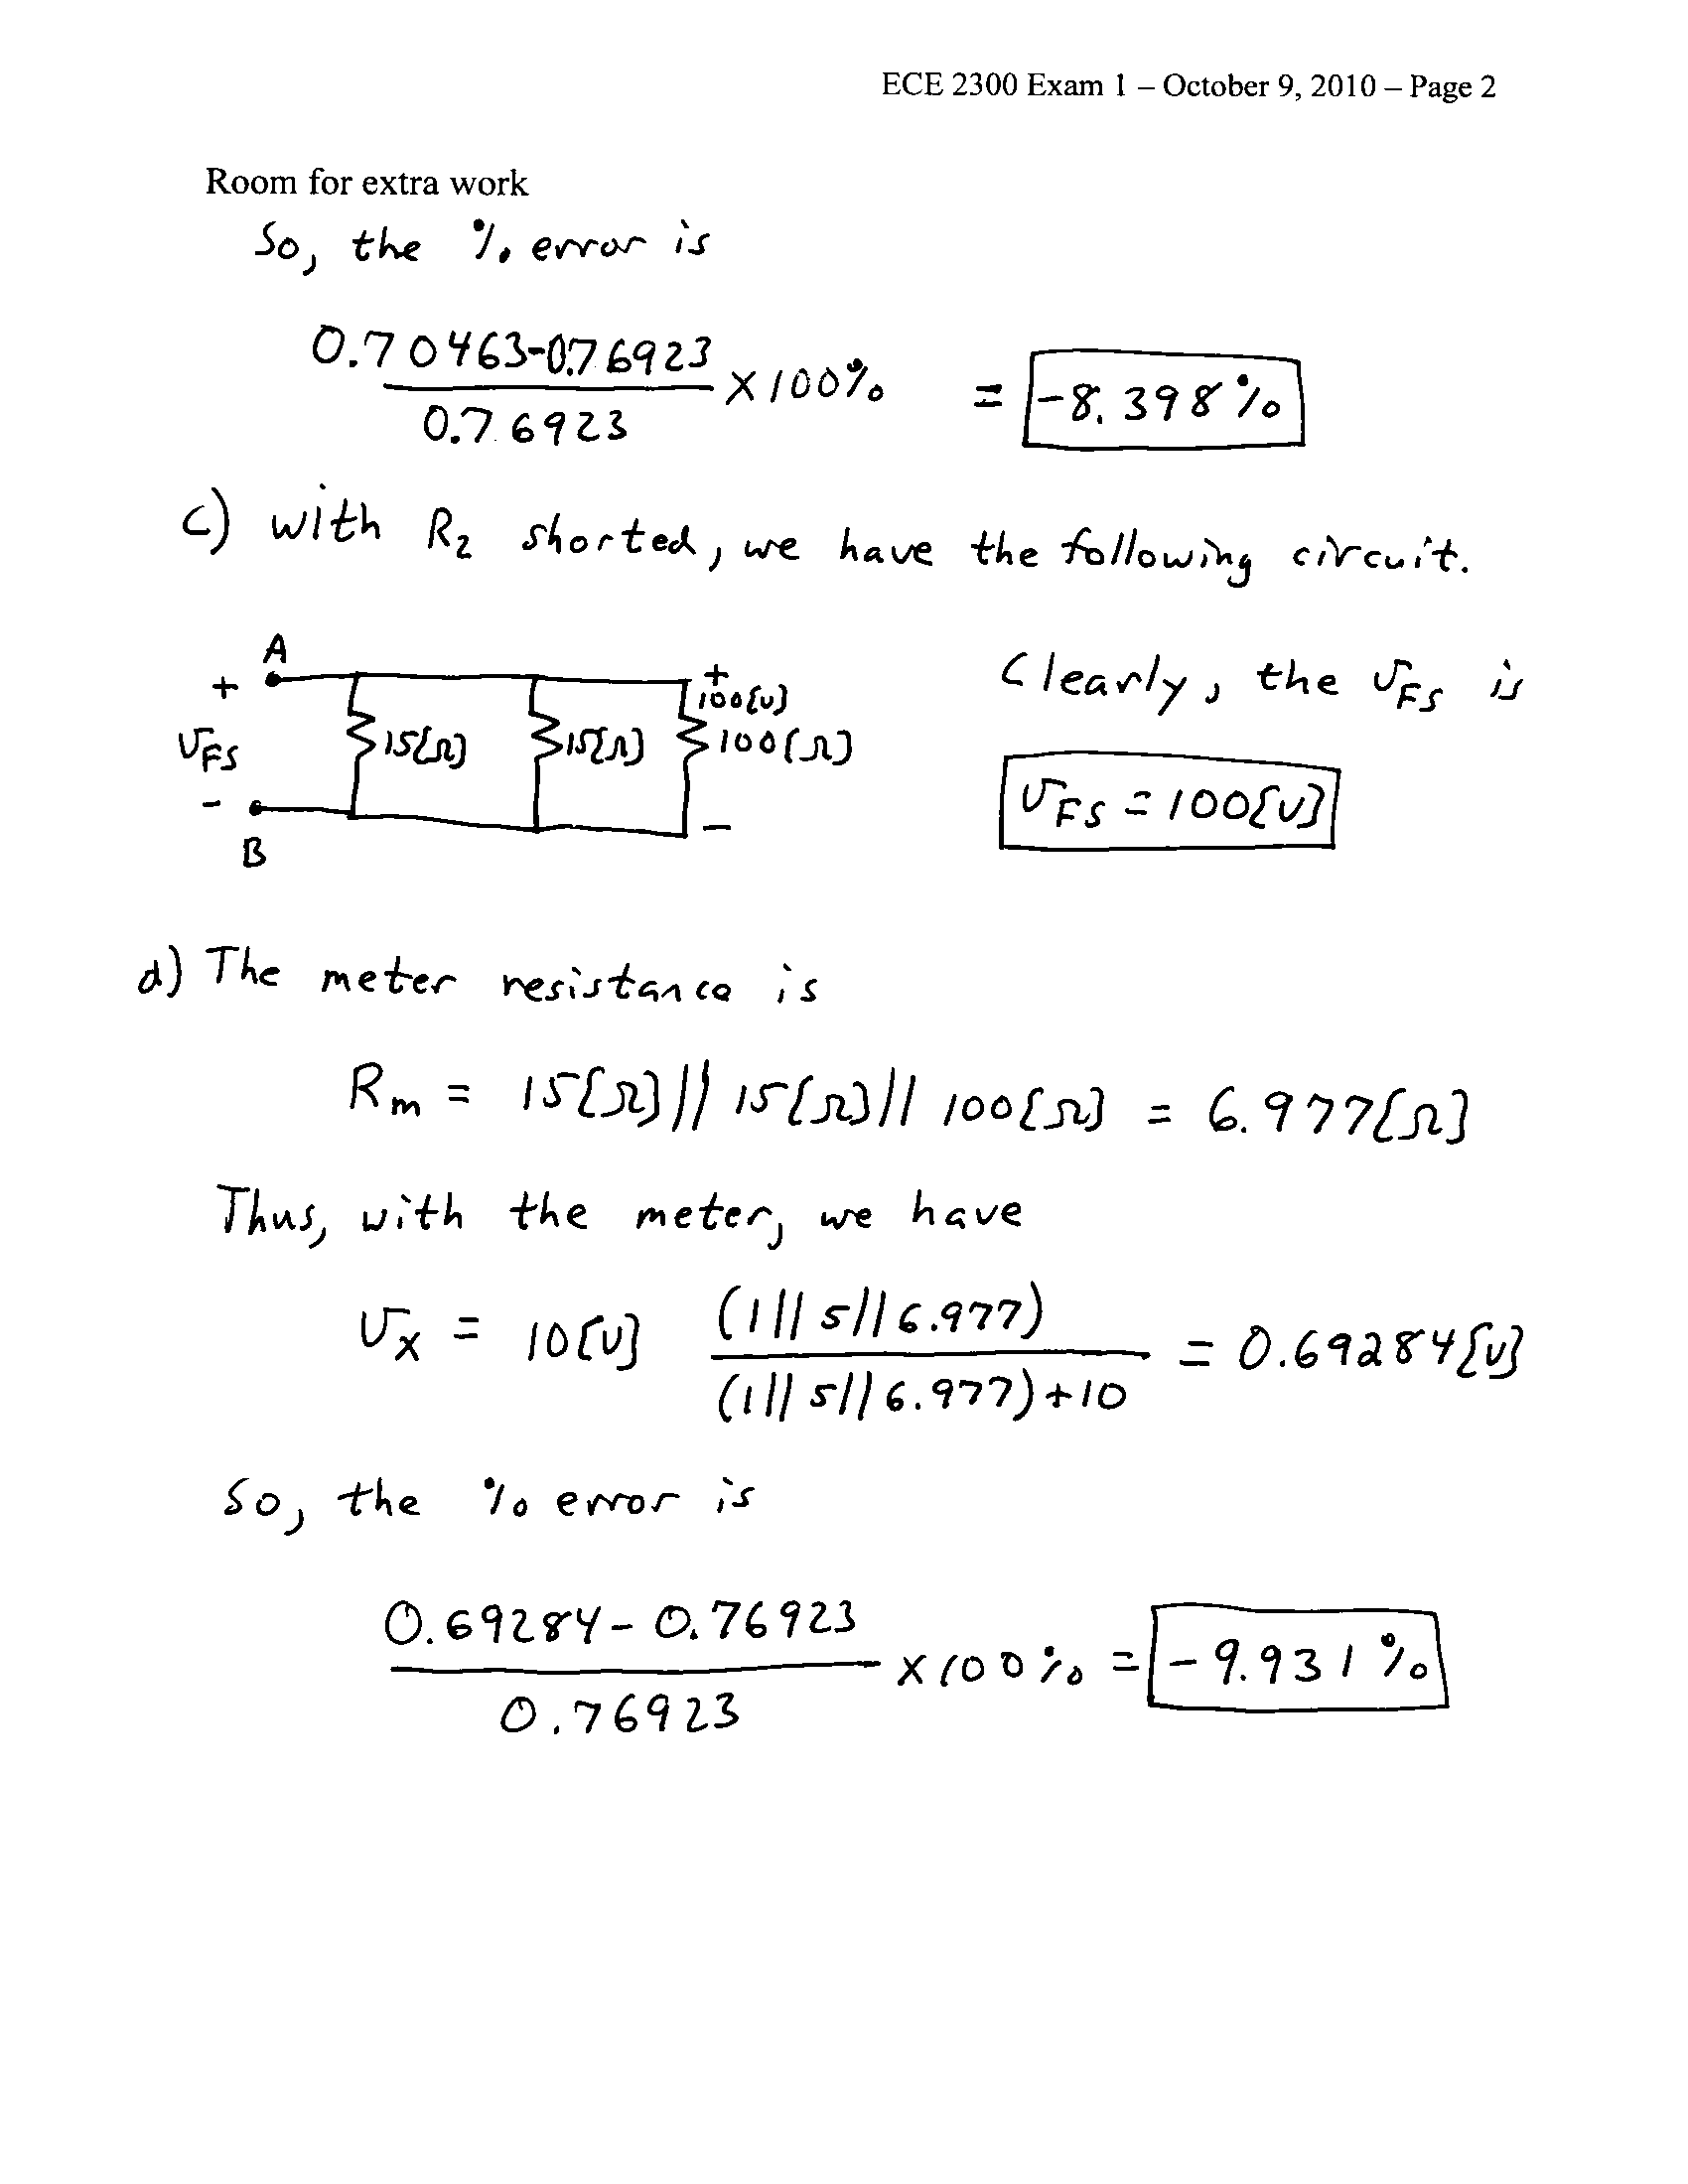 ECE 2300 Exam 1 – October 9, 2010 – Page 2
Room for extra work
So, the % error is
0.70463-0.76923
0.76923
x 100% = -8.398%
c) with R2 shorted, we have the following circuit.
A
+
vFS
-
B
15[Ω]
15[Ω]
+
100[v]
100[Ω]
-
Clearly, the vFS is
vFS = 100[v]
d) The meter resistance is
Rm = 15[Ω] || 15[Ω] || 100[Ω] = 6.977[Ω]
Thus, with the meter, we have
vx = 10[v] (1||5||6.977)
(1||5||6.977)+10
= 0.69284[v]
So, the % error is
0.69284 - 0.76923
0.76923
x 100% = -9.931%